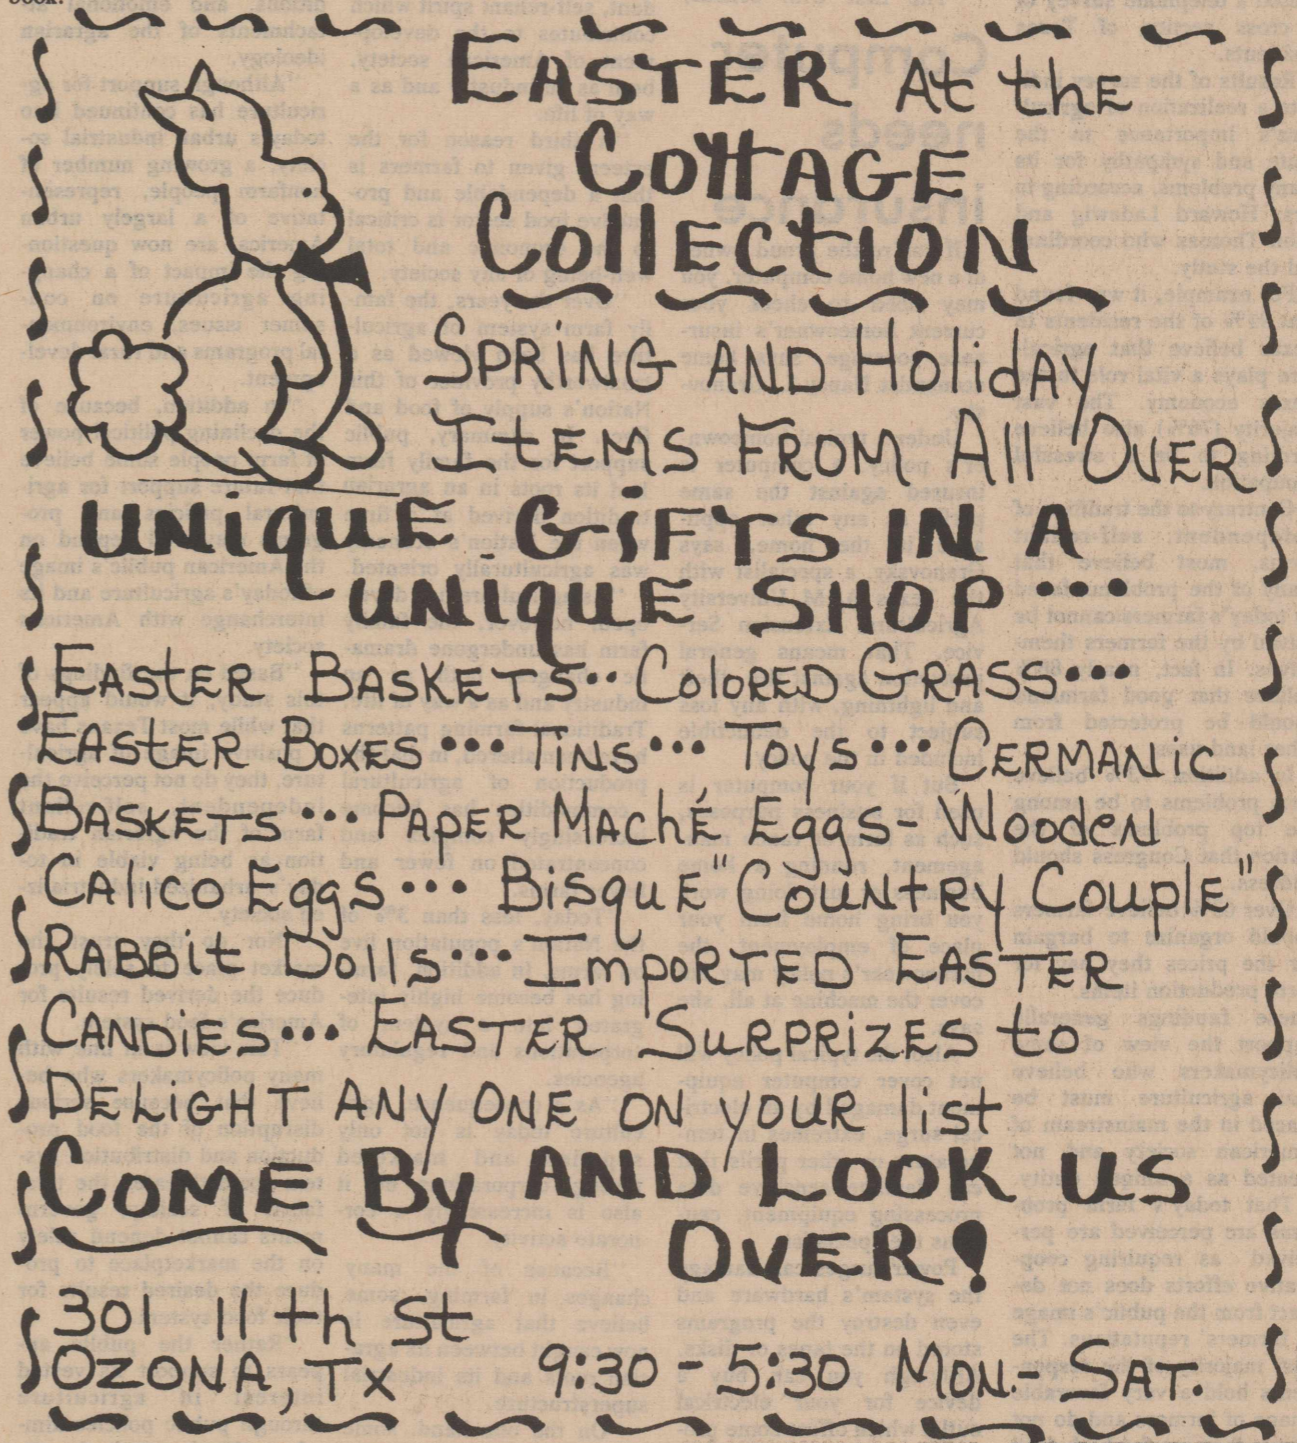 EASTER At the
COttAGE
CollECtiON
SPRiNG AND HolidAY
ItEMS FROM All OVER
UNiQUE GiFTS IN A
UNiQUE SHOP...
EAStER BASKETS.. ColoRED GRASS...
EAStER BOXES... TiNS... Toys... CERMANiC
BASKETS... PAPER MAChÉ Eggs- WoodeN
CAliCO Eggs... BisquE "COUNtRy CouplE"
RABBit Dolls... IMpoRTED EASTER
CANDiES... EASTER SuRPRiZES to
DELiGHT ANY ONE ON YOUR list
COME By AND LOOK US
OVER!
301 11th St
OZONA, Tx 9:30 - 5:30 MON.- SAT.